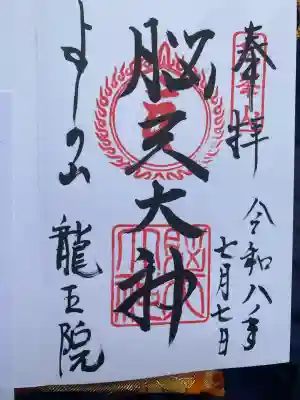 奉拝
令和八年
七月七日
脳天大神
よしの山
龍王院